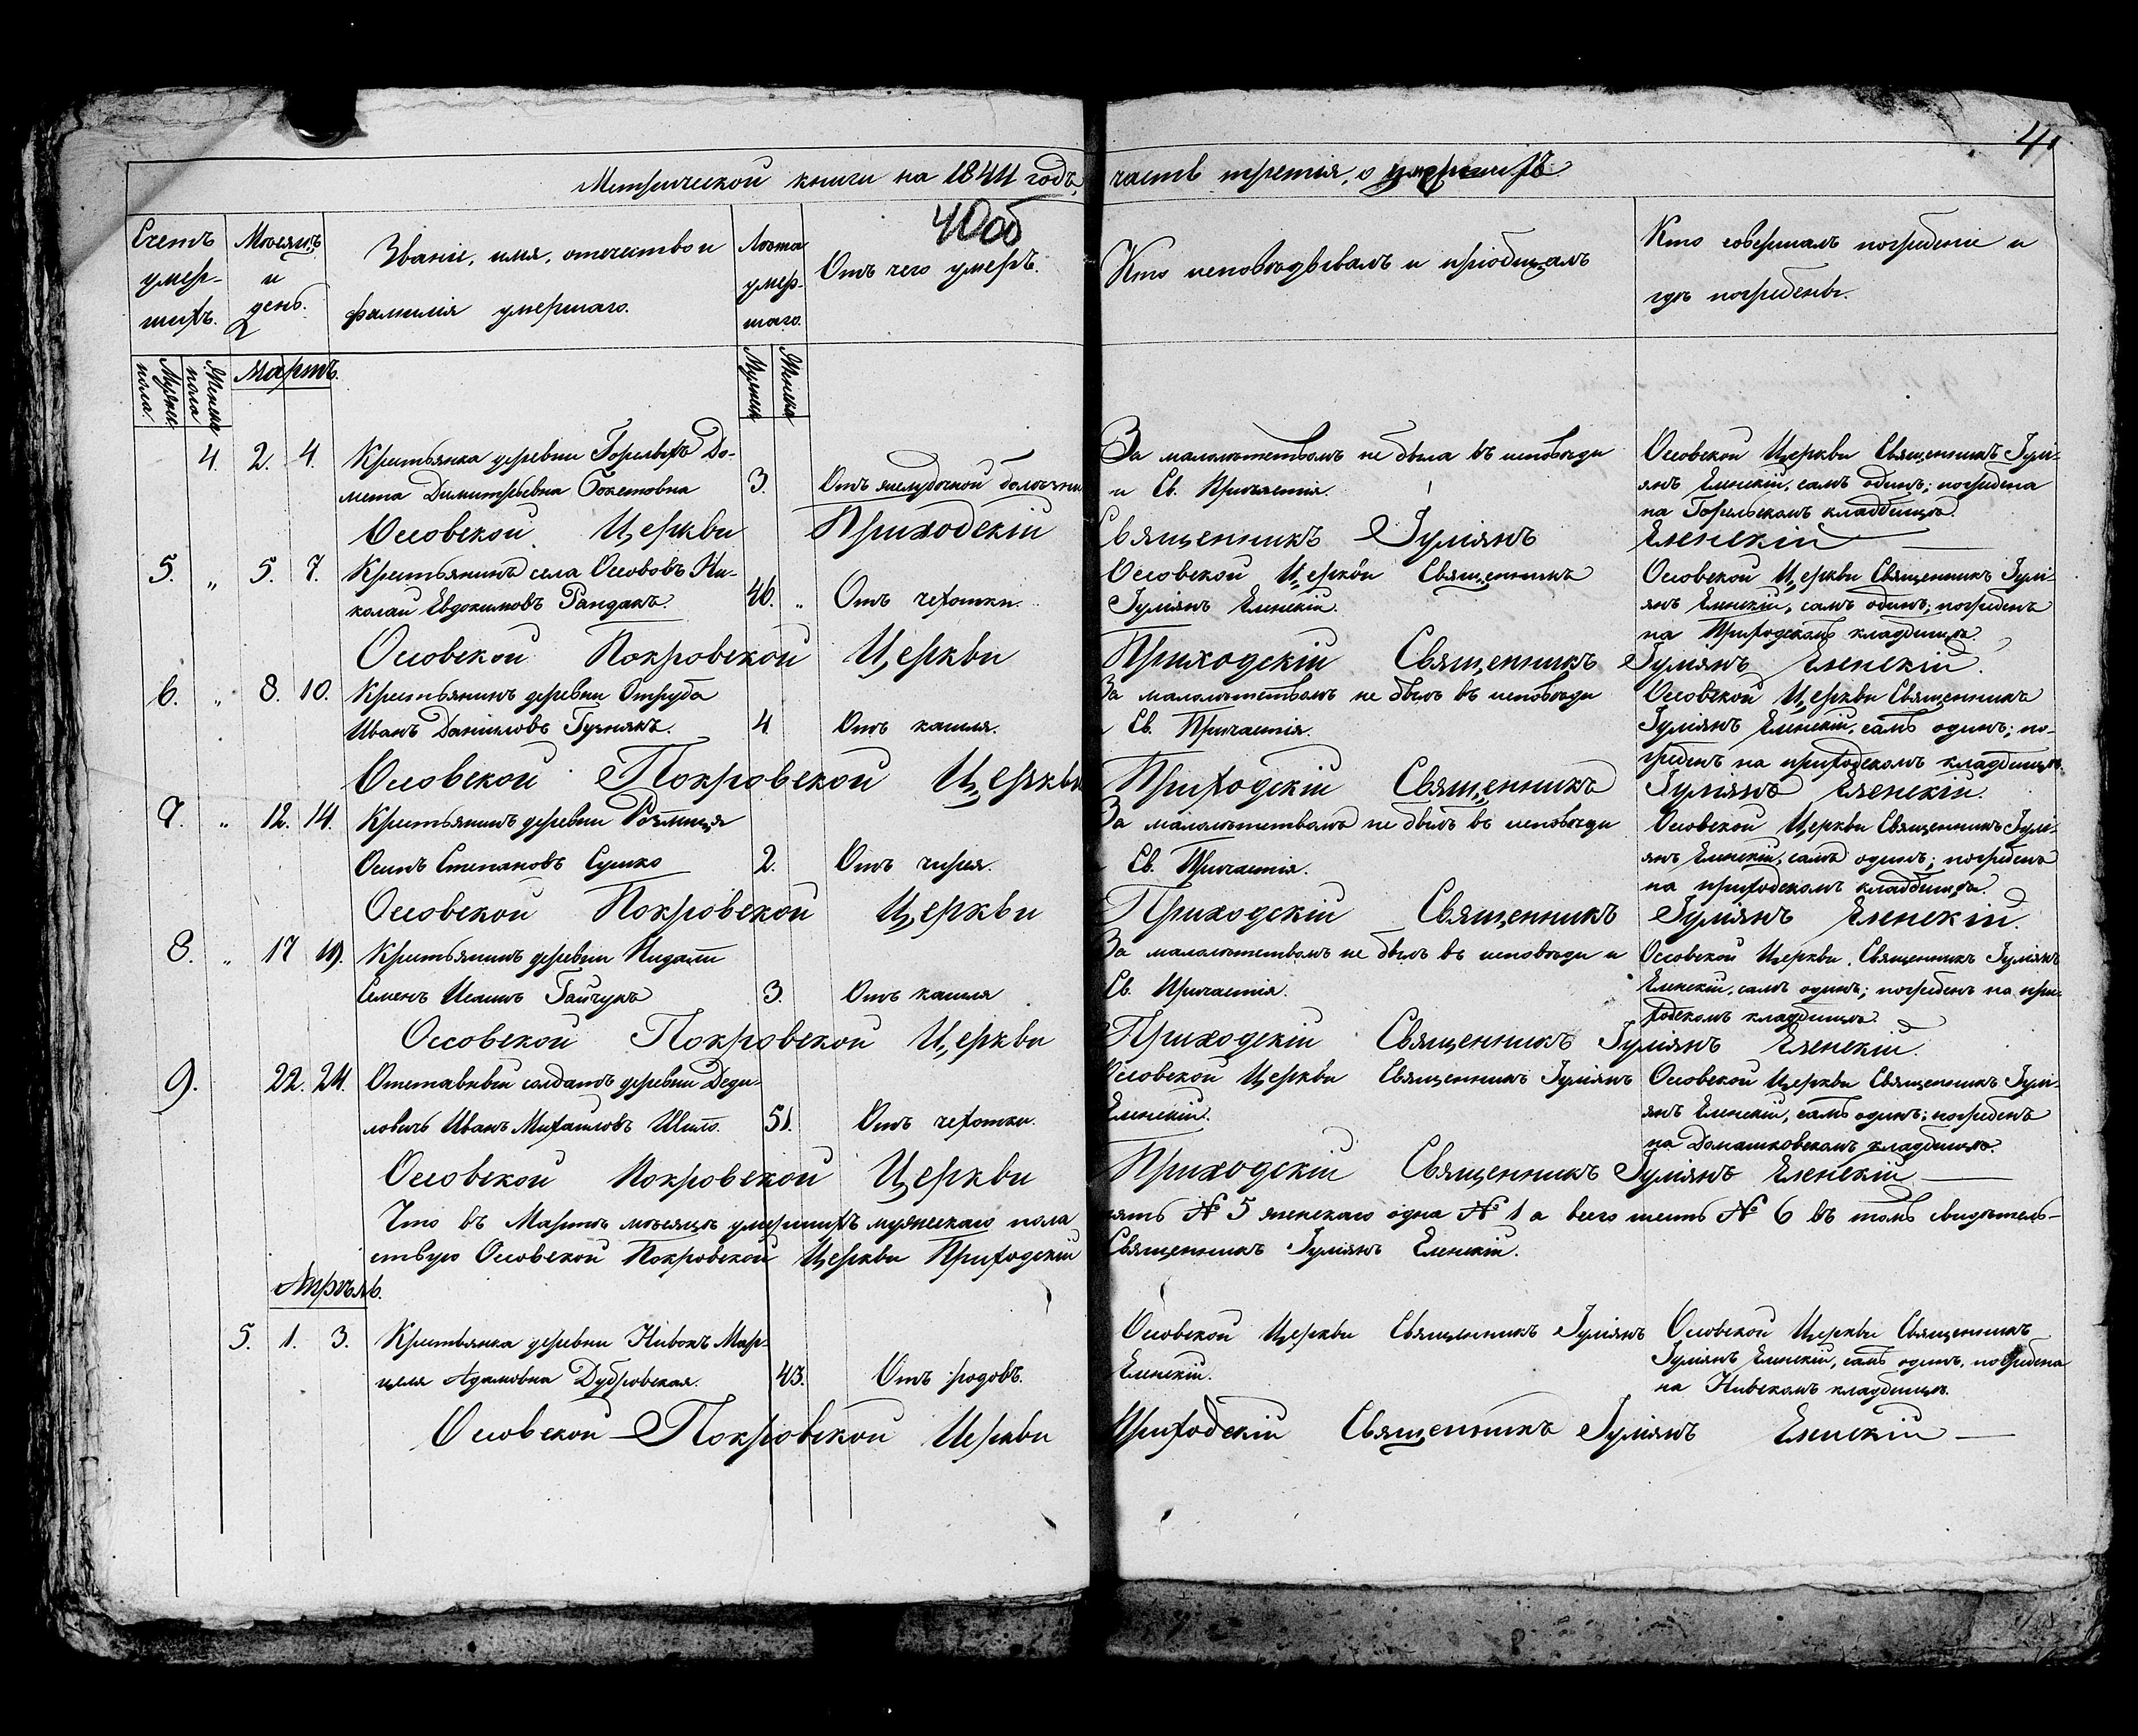 41
Метрической книги на 1844 годъ, часть третія, о умершихъ
40об
Счетъ умер-шихъ.
Мѣсяцъ и день.
Званіе, имя, отечество и фамилія умершаго.
Лѣта умер-шаго.
Отъ чего умеръ.
Кто исповѣдывалъ и пріобщалъ
Кто совершалъ погребеніе и гдѣ погребены.
Мужеска пола.
Женска пола
Мартъ.
Мужеска
Женска
4. 2. 4. Крестьянка деревни До-
мета Димитрьевна 3. Отъ желудочной болѣзни
За малолѣтствомъ не была въ исповѣди
и Св. Причастія.
Осовской Церкви Священникъ Іулі-
янъ Еленскій, самъ одинъ; погребена
на кладбищѣ.
Осовской Церкви Приходскій Священникъ Іуліянъ Еленскій
5. „ 5. 7. Крестьянинъ села Осововъ Ни-
колай Евдокимовъ Рандакъ. 46. „ Отъ чехотки.
Осовской Церкви Священникъ
Іуліянъ Еленскій.
Осовской Церкви Священникъ Іулі-
янъ Еленскій, самъ одинъ; погребенъ
на Приходскомъ кладбищѣ.
Осовской Покровской Церкви Приходскій Священникъ Іуліянъ Еленскій.
6. „ 8. 10. Крестьянинъ деревни Отруба
Иванъ Даниловъ Гузнякъ. 4. Отъ кашля.
За малолѣтствомъ не былъ въ исповѣди
Св. Причастія.
Осовской Церкви Священникъ
Іуліянъ Еленскій, самъ одинъ; по-
гребенъ на приходскомъ кладбищѣ.
Осовской Покровской Церкви Приходскій Священникъ Іуліянъ Еленскій.
7. „ 12. 14. Крестьянинъ деревни
Осипъ Степановъ Сушко 2. Отъ чирея.
За малолѣтствомъ не былъ въ исповѣди
Св. Причастія.
Осовской Церкви Священникъ Іулі-
янъ Еленскій, самъ одинъ; погребенъ
на приходскомъ кладбищѣ.
Осовской Покровской Церкви Приходскій Священникъ Іуліянъ Еленскій.
8. „ 17 19. Крестьянинъ деревни
Семенъ Исаинъ Гайчукъ 3. Отъ кашля
За малолѣтствомъ не былъ въ исповѣди и
Св. Причастія.
Осовской Церкви Священникъ Іуліянъ
Еленскій, самъ одинъ; погребенъ на при-
ходскомъ кладбищѣ.
Оссовской Покровской Церкви Приходскій Священникъ Іуліянъ Еленскій.
9. 22. 24. Отставный солдатъ деревни Деди-
ловичъ Иванъ Михайловъ Шило. 51. Отъ чехотки.
Осовской Церкви Священникъ Іуліянъ
Еленскій.
Осовской Церкви Священникъ Іулі-
янъ Еленскій, самъ одинъ; погребенъ
на Домашковскомъ кладбищѣ.
Осовской Покровской Церкви Приходскій Священникъ Іуліянъ Еленскій
Что въ Мартѣ мѣсяцѣ умершихъ мужескаго пола пять № 5 женскаго одна № 1 а всего шесть № 6 въ томъ свидѣтель-
ствую Осовской Покровской Церкви Приходскій Священникъ Іуліянъ Еленскій.
Апрѣль.
5. 1. 3. Крестьянка деревни Нивокъ Мар-
целя Адамовна Дубровская. 43. Отъ родовъ.
Осовской Церкви Священникъ Іуліянъ
Еленскій.
Осовской Церкви Священникъ
Іуліянъ Еленскій, самъ одинъ, погребена
на Нивскомъ кладбищѣ.
Осовской Покровской Церкви Приходскій Священникъ Іуліянъ Еленскій